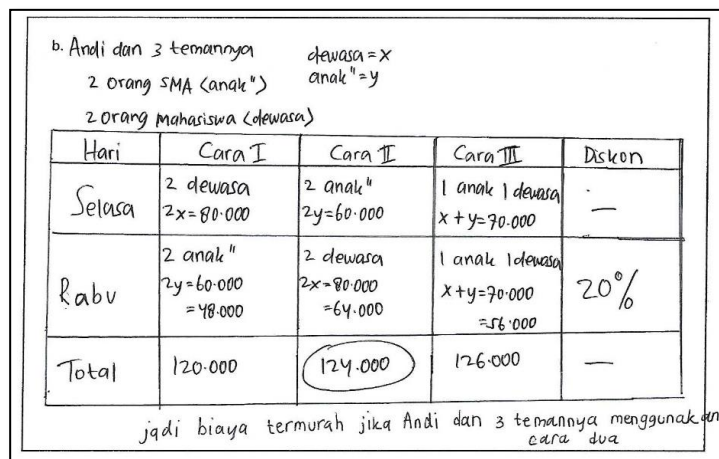 b. Andi dan 3 temannya
dewasa = x
2 orang SMA (anak")
anak" = y
2 orang mahasiswa (dewasa)
Hari Cara I Cara II Cara III Diskon
Selasa
2 dewasa
2x = 80.000
2 anak"
2y = 60.000
1 anak 1 dewasa
x + y = 70.000
—
Rabu
2 anak"
2y = 60.000
= 48.000
2 dewasa
2x = 80.000
= 64.000
1 anak 1 dewasa
x + y = 70.000
= 56.000
20%
Total 120.000 124.000 126.000 —
jadi biaya termurah jika Andi dan 3 temannya menggunakan
cara dua